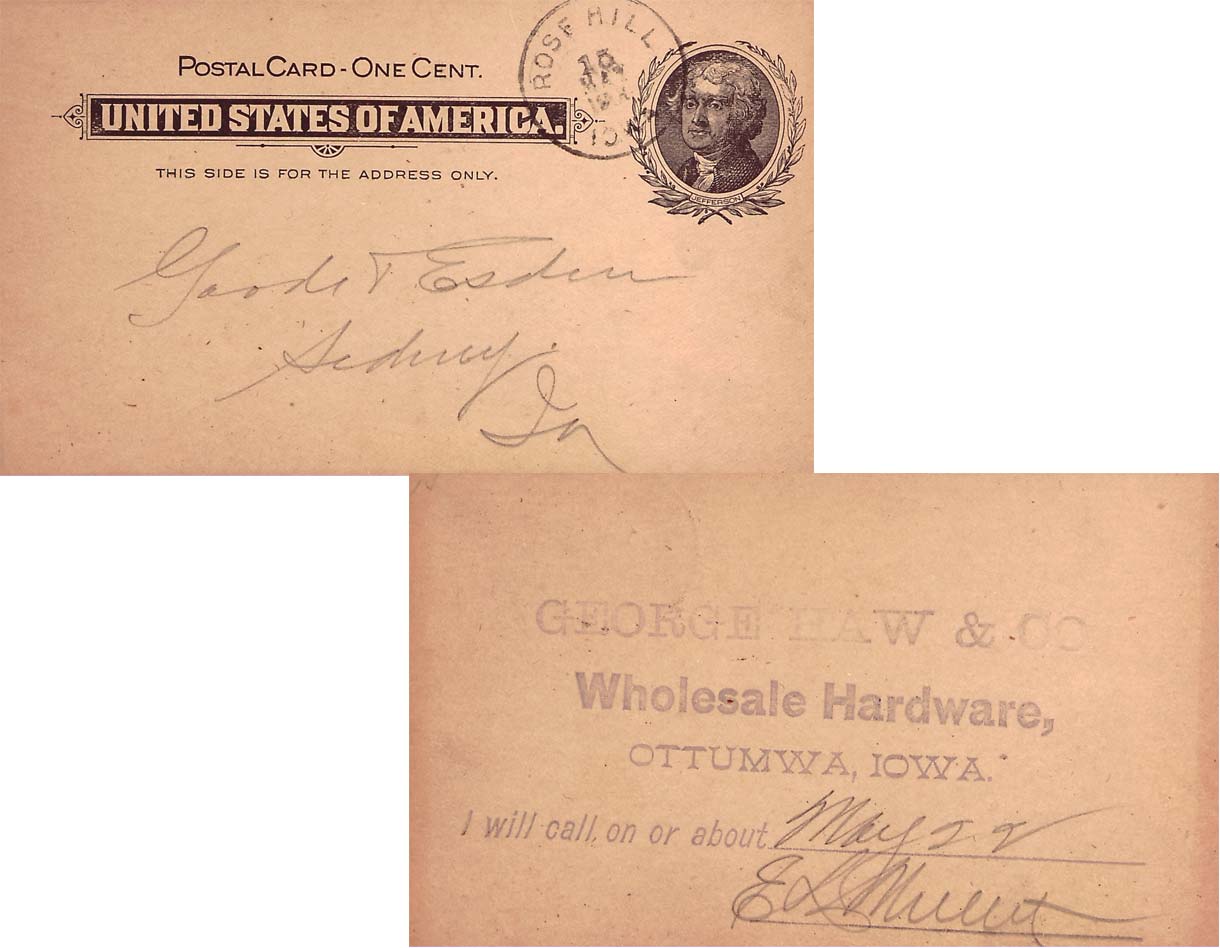 POSTAL CARD - ONE CENT.
UNITED STATES OF AMERICA.
THIS SIDE IS FOR THE ADDRESS ONLY.
ROSE HILL
15
IOWA
JEFFERSON
Sidney
Ia
GEORGE HAW & CO
Wholesale Hardware,
OTTUMWA, IOWA.
I will call on or about May 22
E L